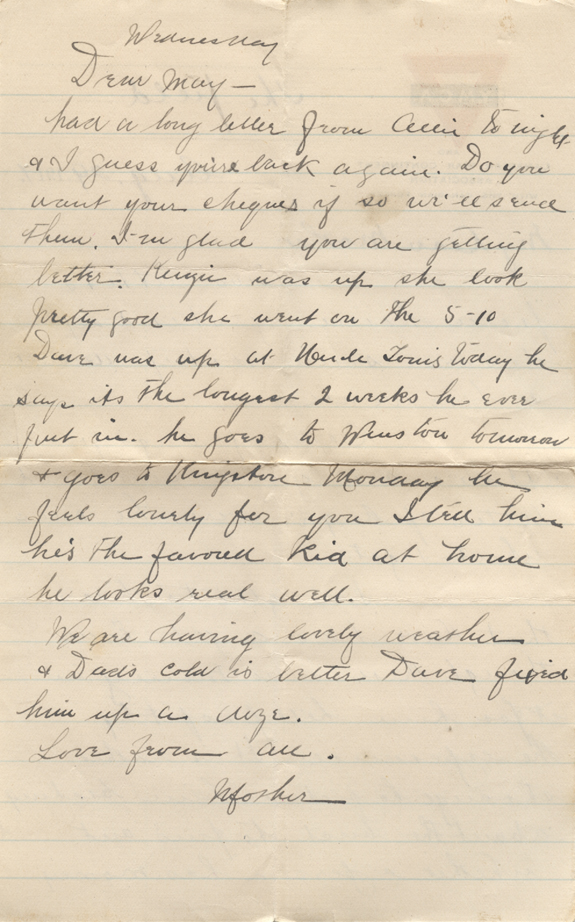 Wednesday
Dear May —
had a long letter from Allie tonight
& I guess you're back again. Do you
want your cheques if so we'll send
them. I'm glad you are getting
better. was up she look
pretty good she went on the 5-10
Dave was up at Uncle Louis today he
says its the longest 2 weeks he ever
put in. he goes to Winston tomorrow
& goes to Kingston Monday he
feels lonely for you I tell him
he's the favoured kid at home
he looks real well.
We are having lovely weather
& Dads cold is better Dave fixed
him up a doze.
Love from all.
Mother